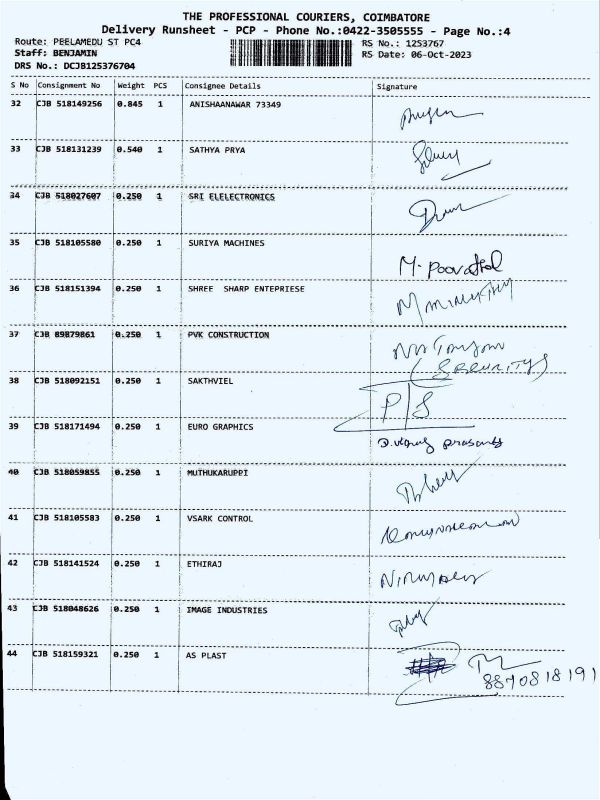 THE PROFESSIONAL COURIERS, COIMBATORE
Delivery Runsheet - PCP - Phone No.:0422-3505555 - Page No.:4
Route: PEELAMEDU ST PC4 RS No.: 1253767
Staff: BENJAMIN RS Date: 06-Oct-2023
DRS No.: DCJB125376704
S No Consignment No Weight PCS Consignee Details Signature
32 CJB 518149256 0.845 1 ANISHAANAWAR 73349
33 CJB 518131239 0.540 1 SATHYA PRYA
34 CJB 518027607 0.250 1 SRI ELELECTRONICS
35 CJB 518105580 0.250 1 SURIYA MACHINES
M.
36 CJB 518151394 0.250 1 SHREE SHARP ENTEPRIESE
37 CJB 89879861 0.250 1 PVK CONSTRUCTION
(SECURITY)
38 CJB 518092151 0.250 1 SAKTHVIEL
P/S
39 CJB 518171494 0.250 1 EURO GRAPHICS
40 CJB 518059855 0.250 1 MUTHUKARUPPI
41 CJB 518105583 0.250 1 VSARK CONTROL
42 CJB 518141524 0.250 1 ETHIRAJ
43 CJB 518048626 0.250 1 IMAGE INDUSTRIES
44 CJB 518159321 0.250 1 AS PLAST
8870818191